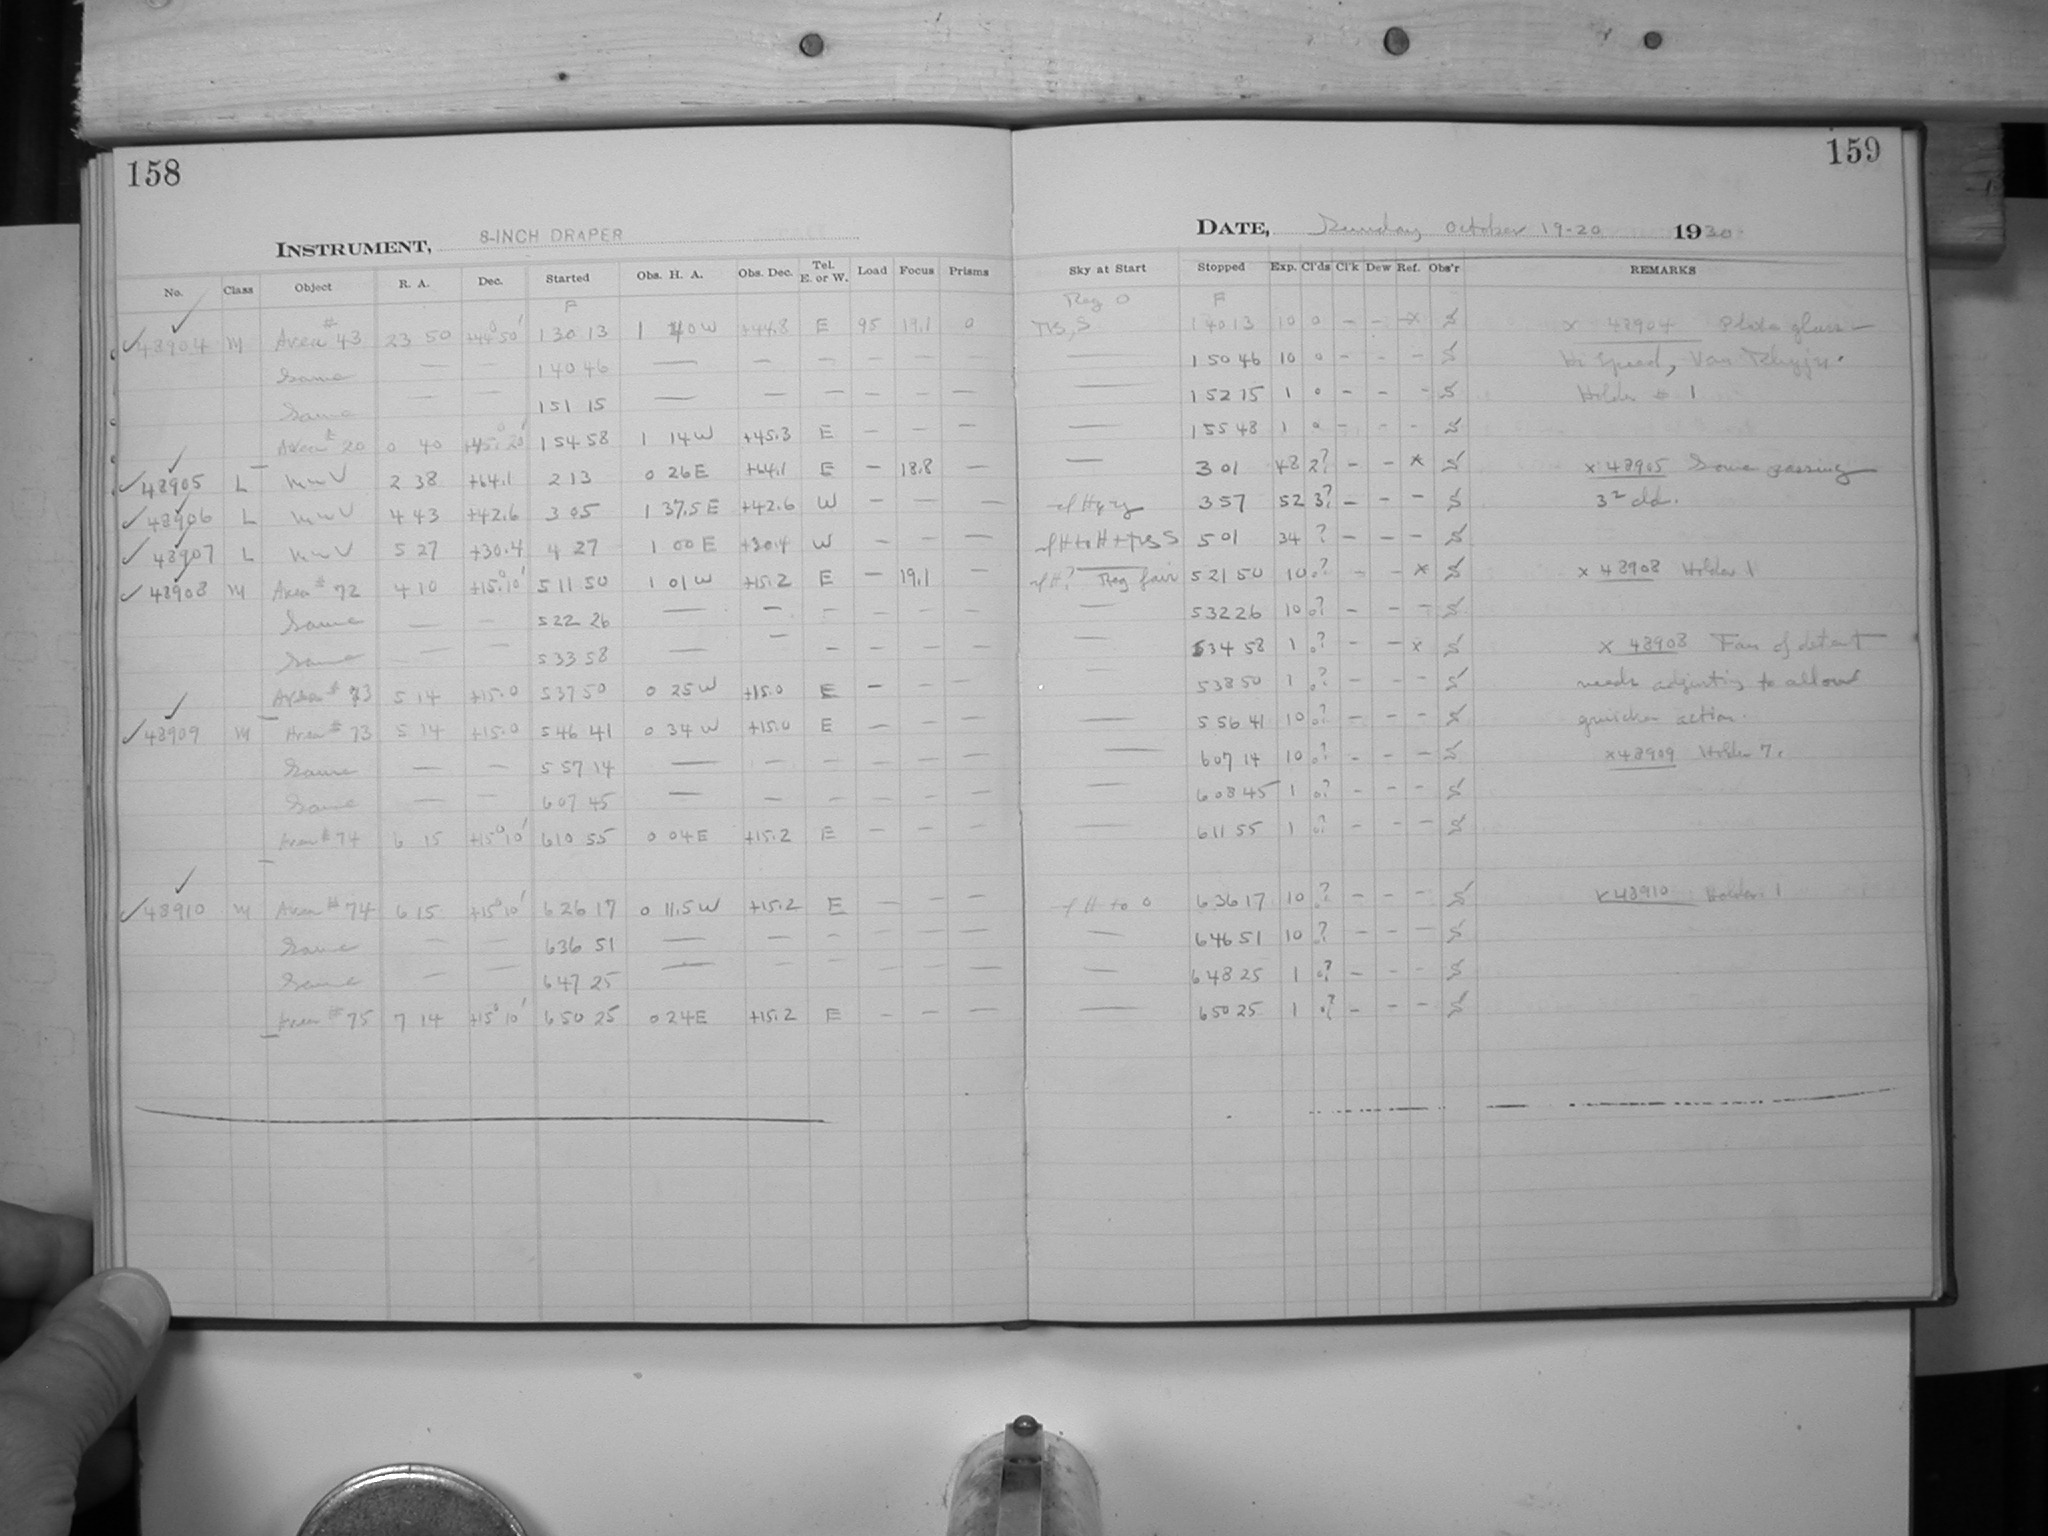 158
INSTRUMENT, 8-INCH DRAPER
No. Class Object R. A. Dec. Started Obs. H. A. Obs. Dec. Tel. E. or W. Load Focus Prisms
F
48904 M Area #43 23 50 +44°50' 1 30 13 1 40 W +44.8 E 95 19.1 0
Same — — 1 40 46 — — — — — —
Same — — 1 51 15 — — — — — —
Area # 20 0 40 +45°20' 1 54 58 1 14 W +45.3 E — — —
48905 L 2 38 +64.1 2 13 0 26 E +64.1 E — 18.8 —
48906 L 4 43 +42.6 3 05 1 37.5 E +42.6 W — — —
48907 L 5 27 +30.4 4 27 1 00 E +30.4 W — — —
48908 M Area # 72 4 10 +15°10' 5 11 50 1 01 W +15.2 E — 19.1 —
Same — — 5 22 26 — — — — — —
Same — — 5 33 58 — — — — — —
Area # 73 5 14 +15.0 5 37 50 0 25 W +15.0 E — — —
48909 M Area # 73 5 14 +15.0 5 46 41 0 34 W +15.0 E — — —
Same — — 5 57 14 — — — — — —
Same — — 6 07 45 — — — — — —
Area # 74 6 15 +15°10' 6 10 55 0 04 E +15.2 E — — —
48910 M Area # 74 6 15 +15°10' 6 26 17 0 11.5 W +15.2 E — — —
Same — — 6 36 51 — — — — — —
Same — — 6 47 25 — — — — — —
Area # 75 7 14 +15°10' 6 50 25 0 24 E +15.2 E — — —
159
DATE, Sunday October 19-20 1930
Sky at Start Stopped Exp. Cl'ds Cl'k Dew Ref. Obs'r REMARKS
Reg 0 F
S 1 40 13 10 0 — — x S x 48904 Plate glass —
— 1 50 46 10 0 — — — S Hi Speed, Van
— 1 52 15 1 0 — — — S Holder # 1
— 1 55 48 1 0 — — — S
— 3 01 48 2? — — x S x 48905 Some passing
3 57 52 3? — — — S 3² cld.
5 01 34 ? — — — S
Reg fair 5 21 50 10 0? — — x S x 48908 Holder 1
— 5 32 26 10 0? — — — S
— 5 34 58 1 0? — — x S x 48908 Fan of detent
5 38 50 1 0? — — — S needs adjusting to allow
— 5 56 41 10 0? — — — S quicker action.
— 6 07 14 10 0? — — — S x 48909 Holder 7.
— 6 08 45 1 0? — — — S
— 6 11 55 1 0? — — — S
6 36 17 10 ? — — — S x 48910 Holder 1
— 6 46 51 10 ? — — — S
— 6 48 25 1 0? — — — S
— 6 50 25 1 0? — — — S